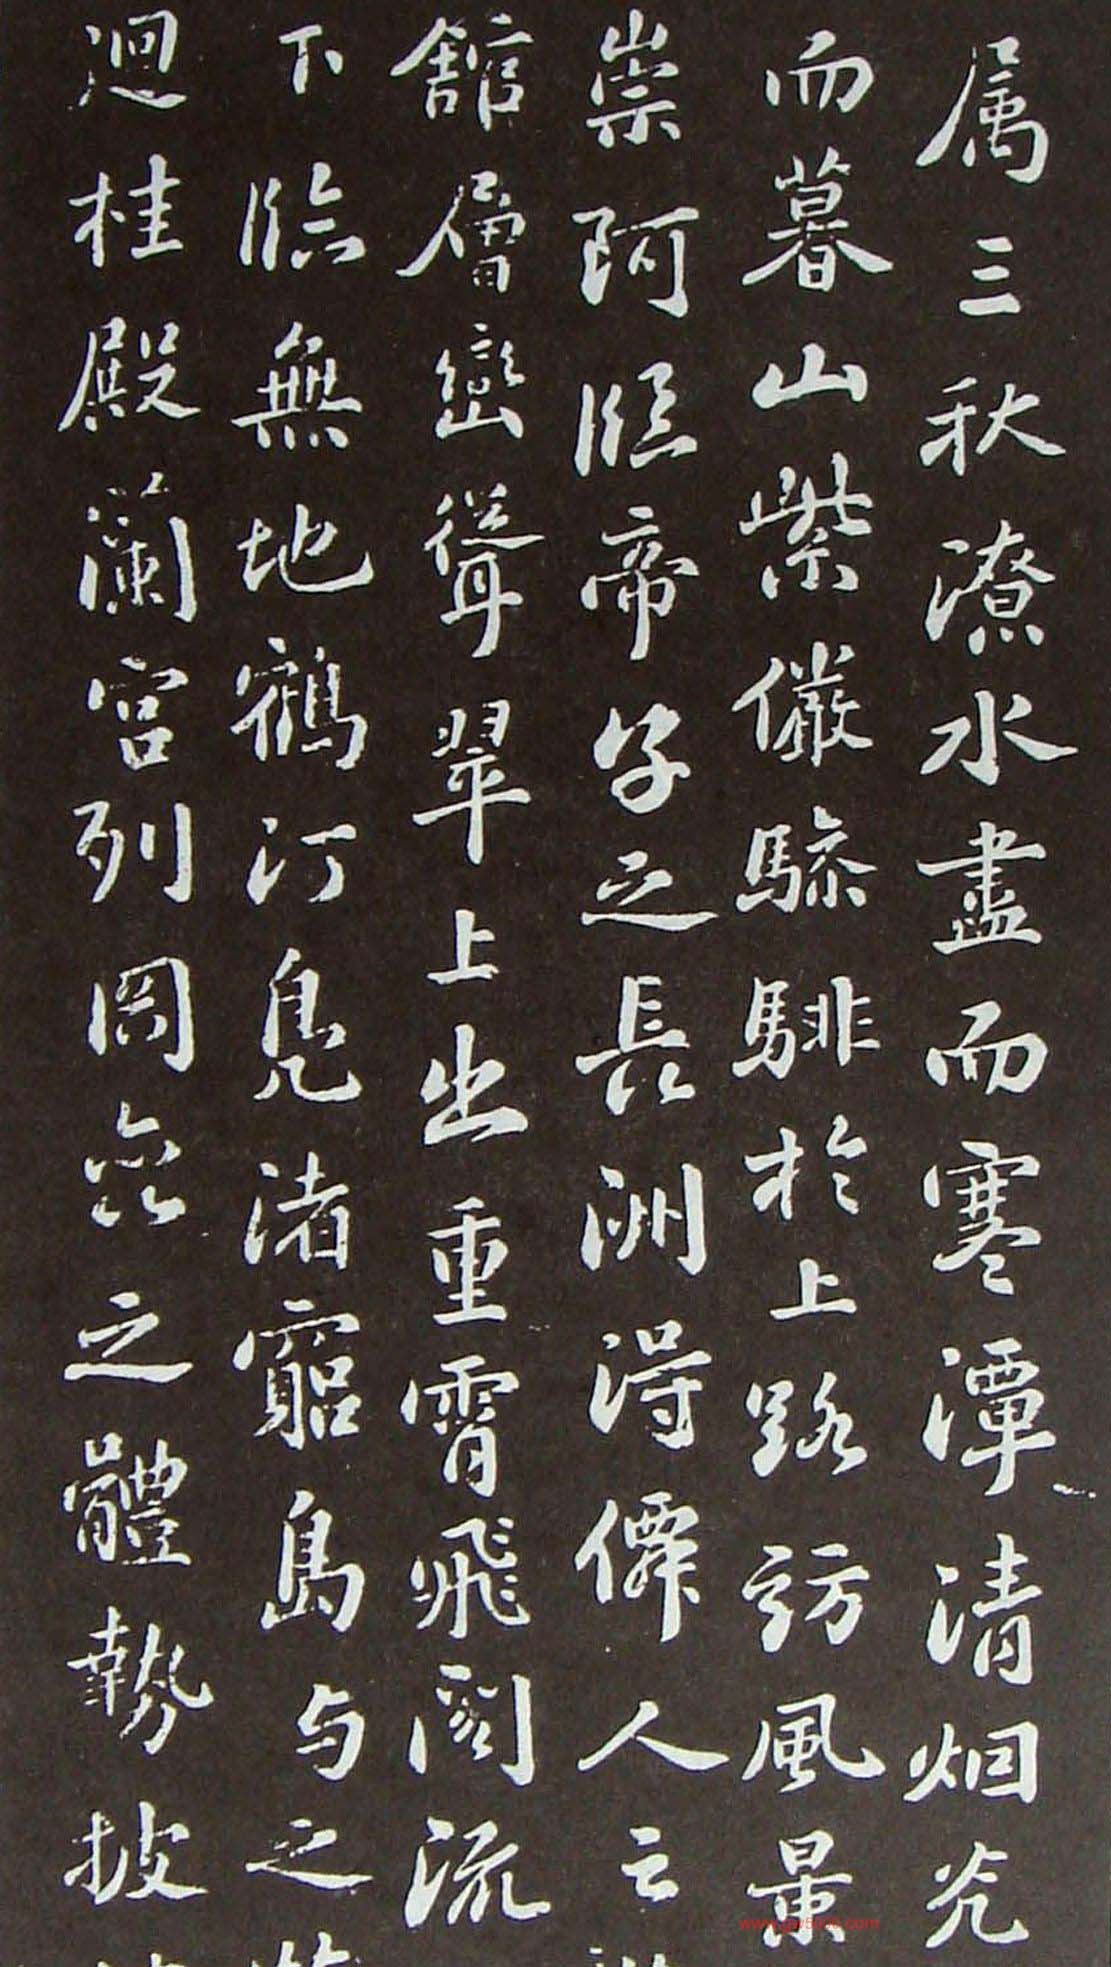 属三秋潦水盡而寒潭清烟光
而暮山紫儼驂騑於上路訪風景
崇阿臨帝子之長洲得僊人之
舘層巒聳翠上出重霄飛閣流
下臨無地鶴汀鳧渚窮島与之
迴桂殿蘭宮列岡巒之體勢披